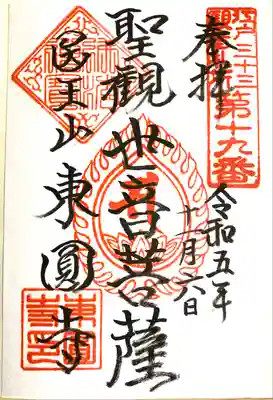 奉拝
江戸三十三
観音札所
第十九番
令和五年
十一月六日
聖観世音菩薩
医王山東圓寺
東圓寺印